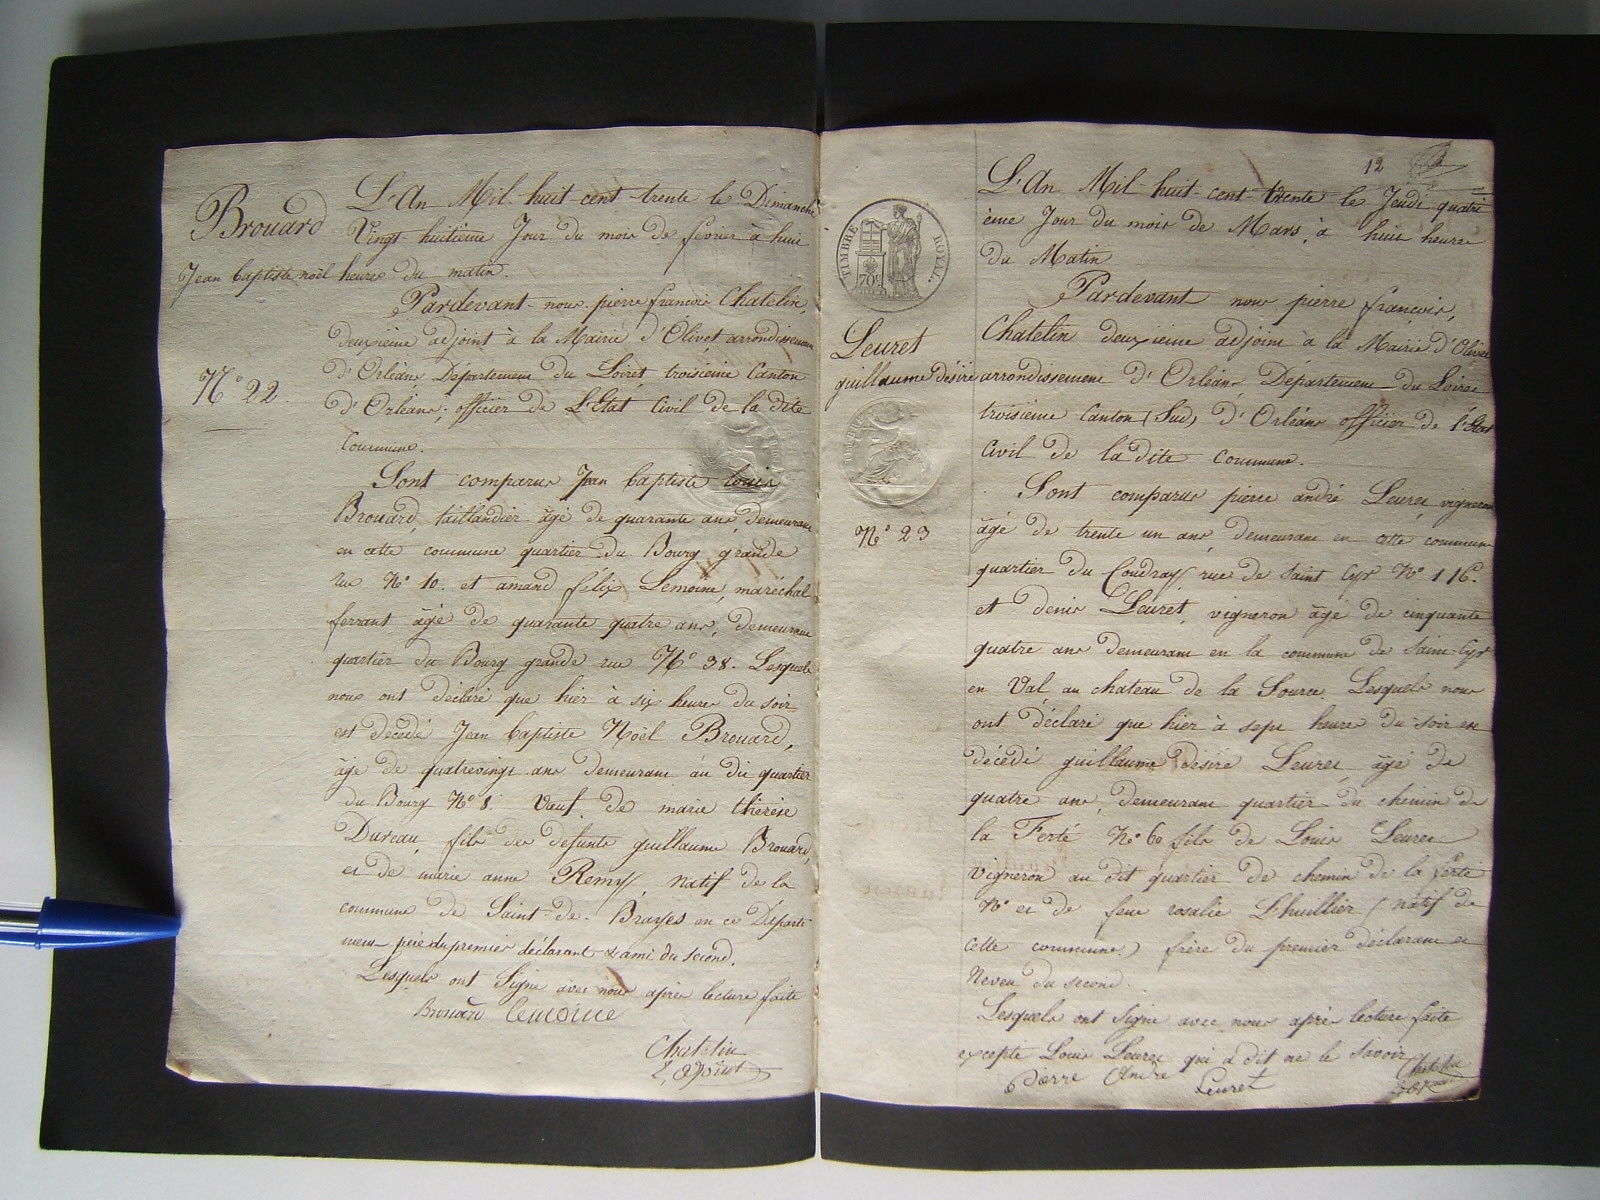 Brouard
Jean baptiste noël
N° 22.
L'An Mil huit cent trente le Dimanche
Vingt huitieme Jour du mois de fevrier à huit
heures du matin.
Pardevant nous pierre françois Chatelin,
deuxième adjoint à la Mairie d'Olivet arrondissement
d'Orléans Département du Loiret troisième Canton
d'Orléans; officier de L'Etat Civil de la dite
Commune.
Sont comparus Jean baptiste Louis
Brouard, taillandier âgé de quarante ans, demeurant
en cette commune quartier du Bourg grande
rue N° 10. et amand félix Lemoine, maréchal
ferrant âgé de quarante quatre ans, demeurant
quartier du Bourg grande rue N° 38. Lesquels
nous ont déclaré que hier à six heures du soir
est décédé Jean baptiste Noël Brouard,
âgé de quatrevingt ans demeurant au dit quartier
du Bourg N° 8. Vœuf de marie thérèse
Dureau, fils des defunts guillaume Brouard,
et de marie anne Remy, natif de la
commune de Saint-de-Brayes en ce Departe
ment père du premier déclarant & ami du second.
Lesquels ont Signé avec nous après lecture faite
Brouard Lemoine
Chatelin
2, adjoint
12
TIMBRE ROYAL.
70c
Leuret
guillaume désiré
N° 23
L'An Mil huit-cent-trente le Jeudi quatri
ème Jour du mois de Mars, à huit heures
du Matin
Pardevant nous pierre françois,
Chatelin deuxieme adjoint à la Mairie d'Olivet
arrondissement d'Orléans Département du Loiret
troisième Canton (Sud) d'Orléans officier de l'Etat
Civil de la dite Commune.
Sont comparus pierre andré Leuret vigneron
âgé de trente un ans, demeurant en cette commune
quartier du Coudray rue de Saint Cyr N° 116.
et denis Leuret, vigneron âgé de cinquante
quatre ans demeurant en la commune de Saint-Cyr
en Val au chateau de la Source. Lesquels nous
ont déclaré que hier à sept heures du soir est
décédé guillaume désiré Leuret âgé de
quatre ans, demeurant quartier du chemin de
la Ferté N° 60 fils de Louis Leuret
vigneron au dit quartier de chemin de la ferté
N° et de feue rosalie Lhuillier (natif de
cette commune) frère du premier déclarant et
Neveu du second.
Lesquels ont Signé avec nous après lecture faite
excepté Louis Leuret qui a dit ne le Savoir
Pierre Andre Leuret
Chatelin